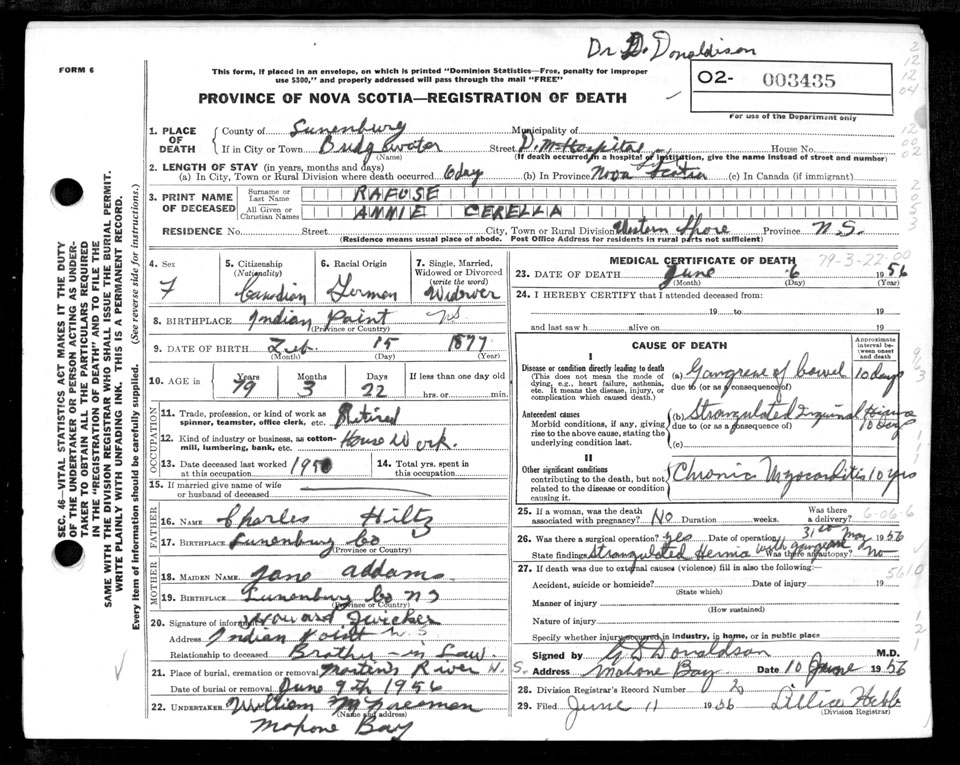 Dr D. Donaldison
FORM 6
This form, if placed in an envelope, on which is printed "Dominion Statistics—Free, penalty for improper
use $300," and properly addressed will pass through the mail "FREE"
O2- 003435
For use of the Department only
PROVINCE OF NOVA SCOTIA—REGISTRATION OF DEATH
1. PLACE OF DEATH
County of Lunenburg Municipality of
If in City or Town Bridgewater Street D. M. Hospital House No.
(Name) (If death occurred in a hospital or institution, give the name instead of street and number)
2. LENGTH OF STAY (in years, months and days)
(a) In City, Town or Rural Division where death occurred 6 day (b) In Province Nova Scotia (c) In Canada (if immigrant)
3. PRINT NAME OF DECEASED
Surname or Last Name RAFUSE
All Given or Christian Names ANNIE CERELLA
RESIDENCE No. Street City, Town or Rural Division Western Shore Province N.S.
(Residence means usual place of abode. Post Office Address for residents in rural parts not sufficient)
4. Sex F
5. Citizenship (Nationality) Canadian
6. Racial Origin German
7. Single, Married, Widowed or Divorced (write the word) Widower
8. BIRTHPLACE Indian Point N.S.
(Province or Country)
9. DATE OF BIRTH Feb. 15 1877
(Month) (Day) (Year)
10. AGE in Years 79 Months 3 Days 22 If less than one day old hrs. or min.
OCCUPATION
11. Trade, profession, or kind of work as spinner, teamster, office clerk, etc. Retired
12. Kind of industry or business, as cotton-mill, lumbering, bank, etc. House Work.
13. Date deceased last worked at this occupation 1950
14. Total yrs. spent in this occupation
15. If married give name of wife or husband of deceased
FATHER
16. NAME Charles Hiltz
17. BIRTHPLACE Lunenburg Co
(Province or Country)
MOTHER
18. MAIDEN NAME Jane Addams
19. BIRTHPLACE Lunenburg Co NS
(Province or Country)
20. Signature of informant Howard Zwicker
Address Indian Point N.S.
Relationship to deceased Brother-in Law.
21. Place of burial, cremation or removal Martins River N.S.
Date of burial or removal June 9th 1956
22. UNDERTAKER William
(Name and address)
Mahone Bay
MEDICAL CERTIFICATE OF DEATH
79-3-22-00
23. DATE OF DEATH June 6 1956
(Month) (Day) (Year)
24. I HEREBY CERTIFY that I attended deceased from:
19 to 19
and last saw h alive on 19
CAUSE OF DEATH
Approximate interval between onset and death
I
Disease or condition directly leading to death
(This does not mean the mode of dying, e.g., heart failure, asthenia, etc. It means the disease, injury, or complication which caused death.)
(a) Gangrene of bowel 10 days
due to (or as a consequence of)
Antecedent causes
Morbid conditions, if any, giving rise to the above cause, stating the underlying condition last.
(b) Strangulated Inguinal Hernia 10 Days
due to (or as a consequence of)
(c)
II
Other significant conditions
contributing to the death, but not related to the disease or condition causing it.
Chronic Myocarditis 10 yrs
25. If a woman, was the death associated with pregnancy? No Duration weeks. Was there a delivery?
6-06-6
26. Was there a surgical operation? yes Date of operation 31st May 1956
State findings Strangulated Hernia with gangrene Was there an autopsy? No
27. If death was due to external causes (violence) fill in also the following:—
5610
Accident, suicide or homicide? Date of injury 19
(State which)
Manner of injury
(How sustained)
Nature of injury
Specify whether injury occurred in industry, in home, or in public place
Signed by G D Donaldson M.D.
Address Mahone Bay Date 10 June 1956
28. Division Registrar's Record Number 20
29. Filed June 11 1956 Lillian Hebb
(Division Registrar)
SEC. 46—VITAL STATISTICS ACT MAKES IT THE DUTY
OF THE UNDERTAKER OR PERSON ACTING AS UNDER-
TAKER TO OBTAIN ALL THE PARTICULARS REQUIRED
IN THE "REGISTRATION OF DEATH" AND TO FILE THE
SAME WITH THE DIVISION REGISTRAR WHO SHALL ISSUE THE BURIAL PERMIT.
WRITE PLAINLY WITH UNFADING INK. THIS IS A PERMANENT RECORD.
Every item of information should be carefully supplied. (See reverse side for instructions.)